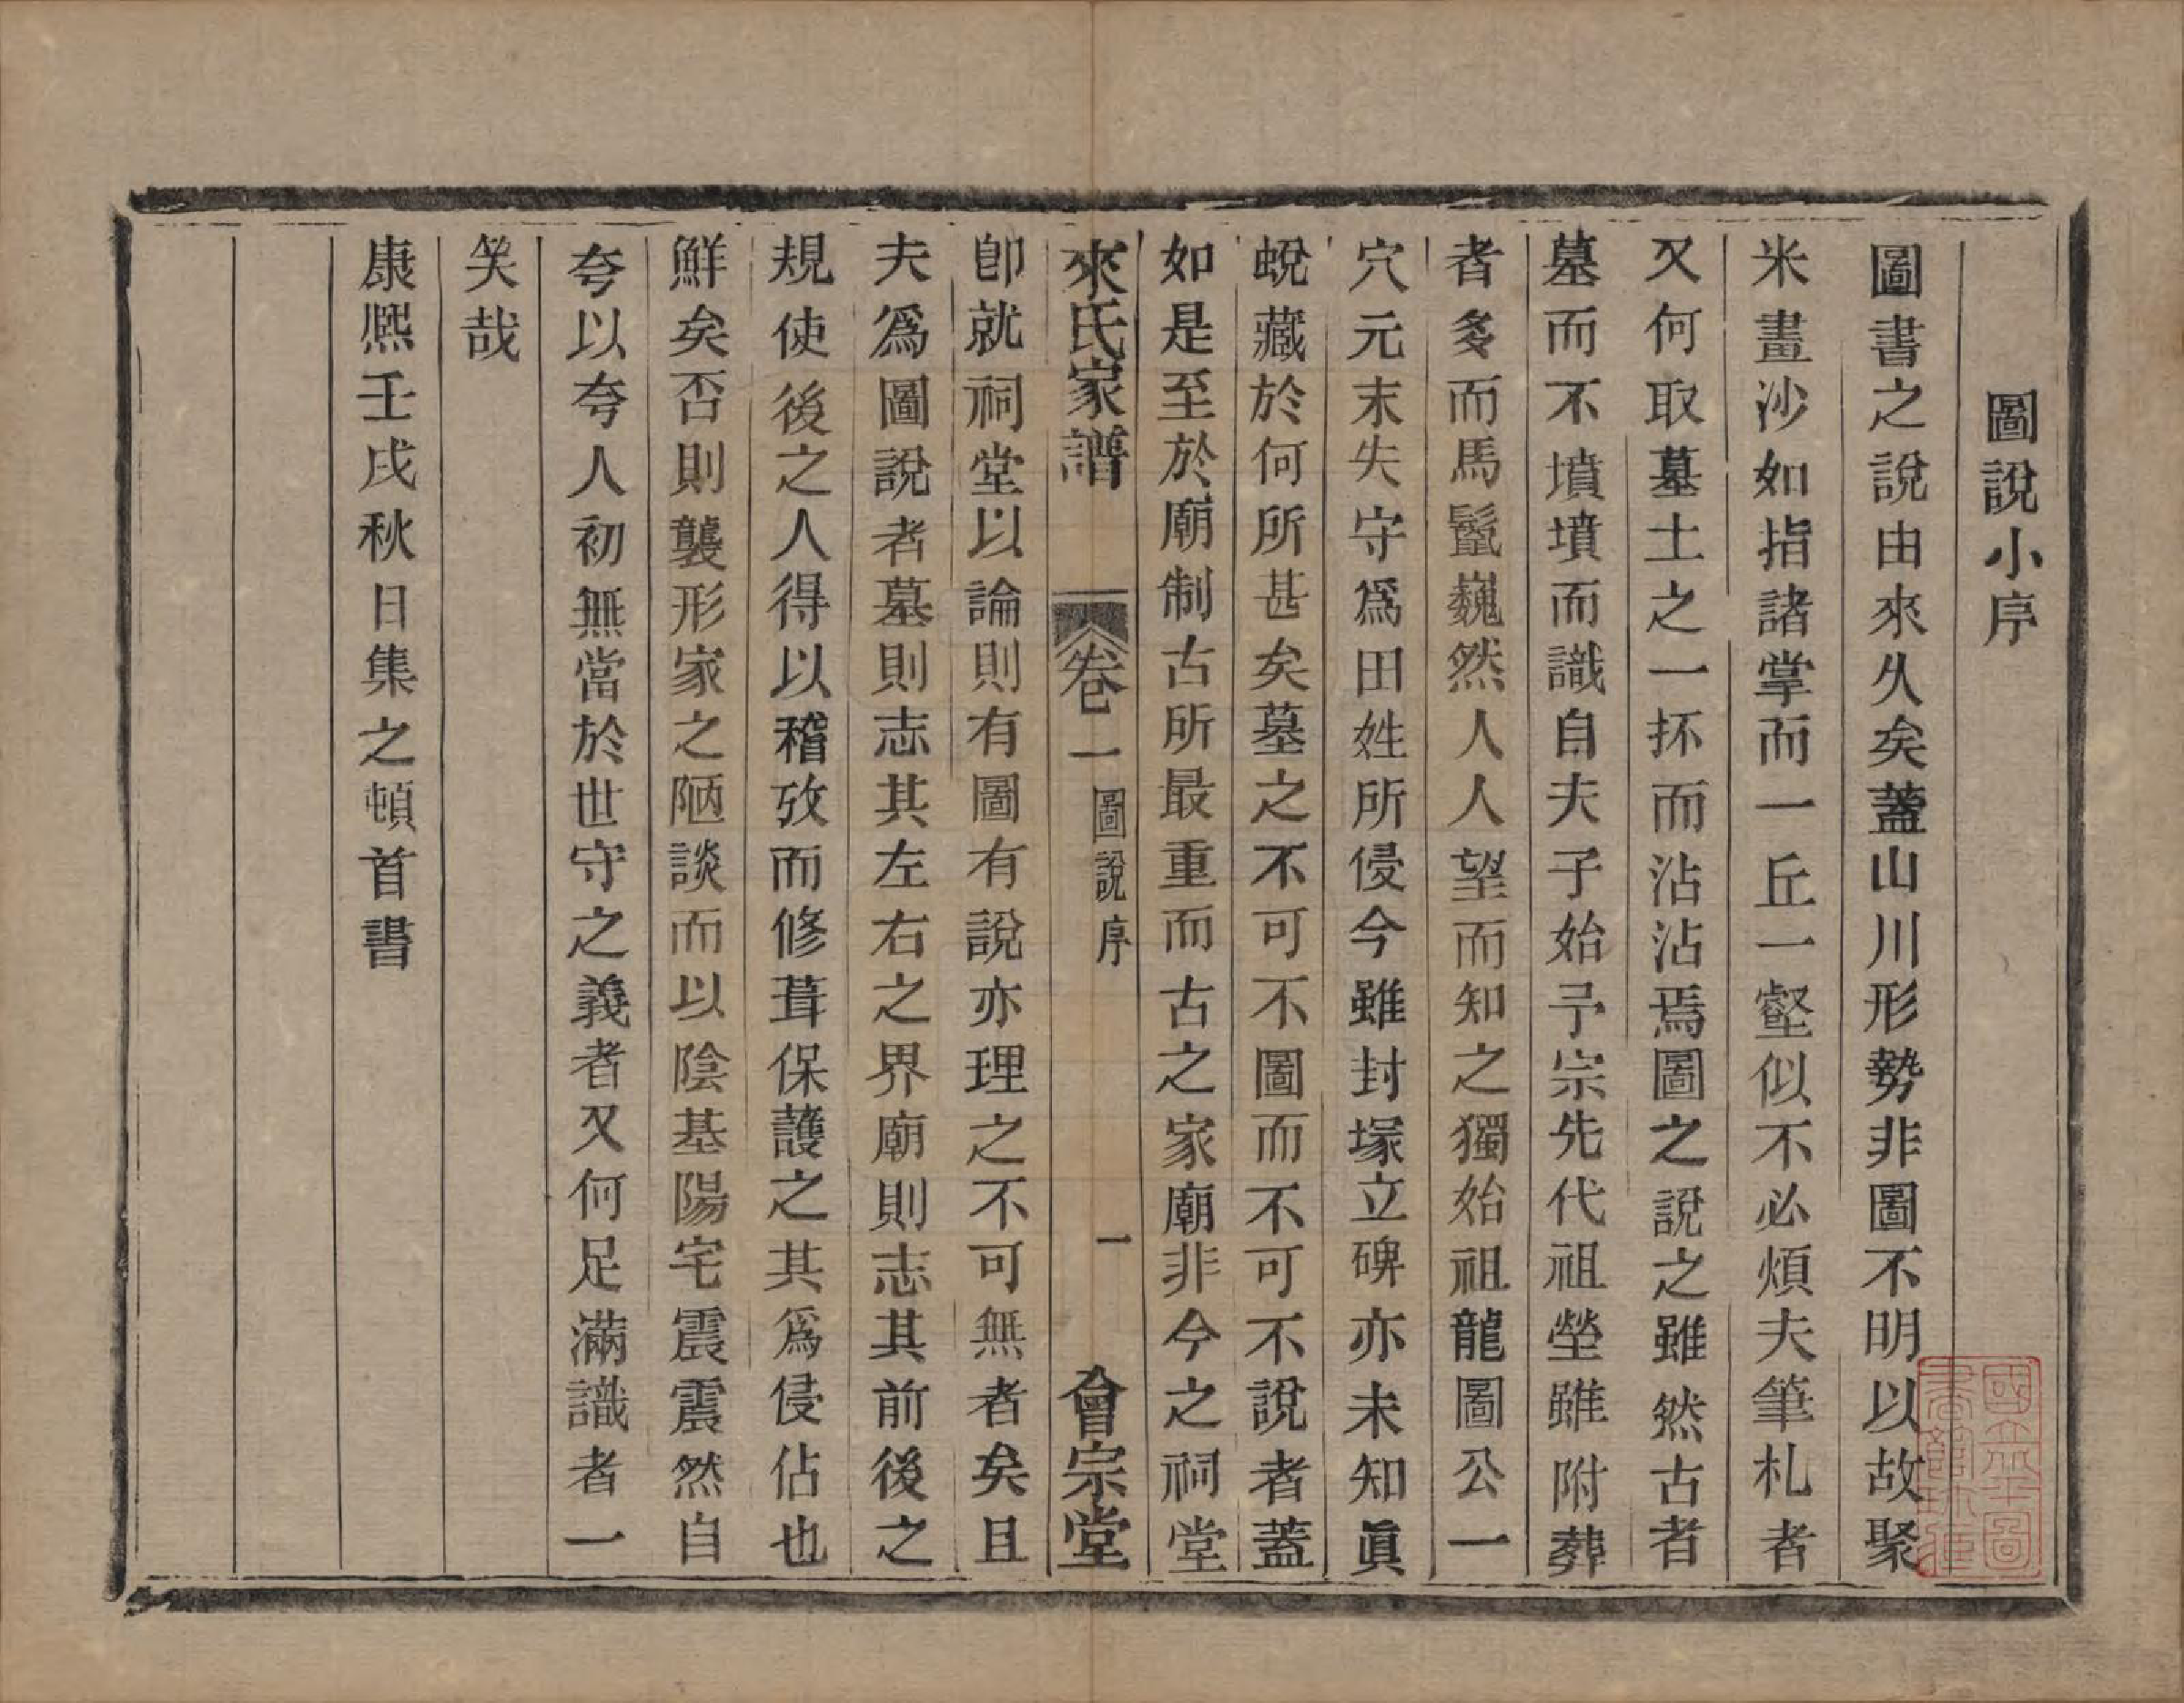 圖說小序
圖書之說由來久矣葢山川形勢非圖不明以故聚
米畫沙如指諸掌而一丘一壑似不必煩夫筆札者
又何取墓土之一抔而沾沾焉圖之說之雖然古者
墓而不墳墳而識自夫子始予宗先代祖塋雖附葬
者多而馬鬣巍然人人望而知之獨始祖龍圖公一
穴元末失守爲田姓所侵今雖封塚立碑亦未知眞
蛻藏於何所甚矣墓之不可不圖而不可不說者葢
如是至於廟制古所最重而古之家廟非今之祠堂
來氏家譜 卷一 圖說序 一 會宗堂
卽就祠堂以論則有圖有說亦理之不可無者矣且
夫爲圖說者墓則志其左右之界廟則志其前後之
規使後之人得以稽攷而修葺保護之其爲侵佔也
鮮矣否則襲形家之陋談而以陰基陽宅震震然自
夸以夸人初無當於世守之義者又何足滿識者一
笑哉
康熙壬戌秋日集之頓首書
國立北平圖書館珍藏